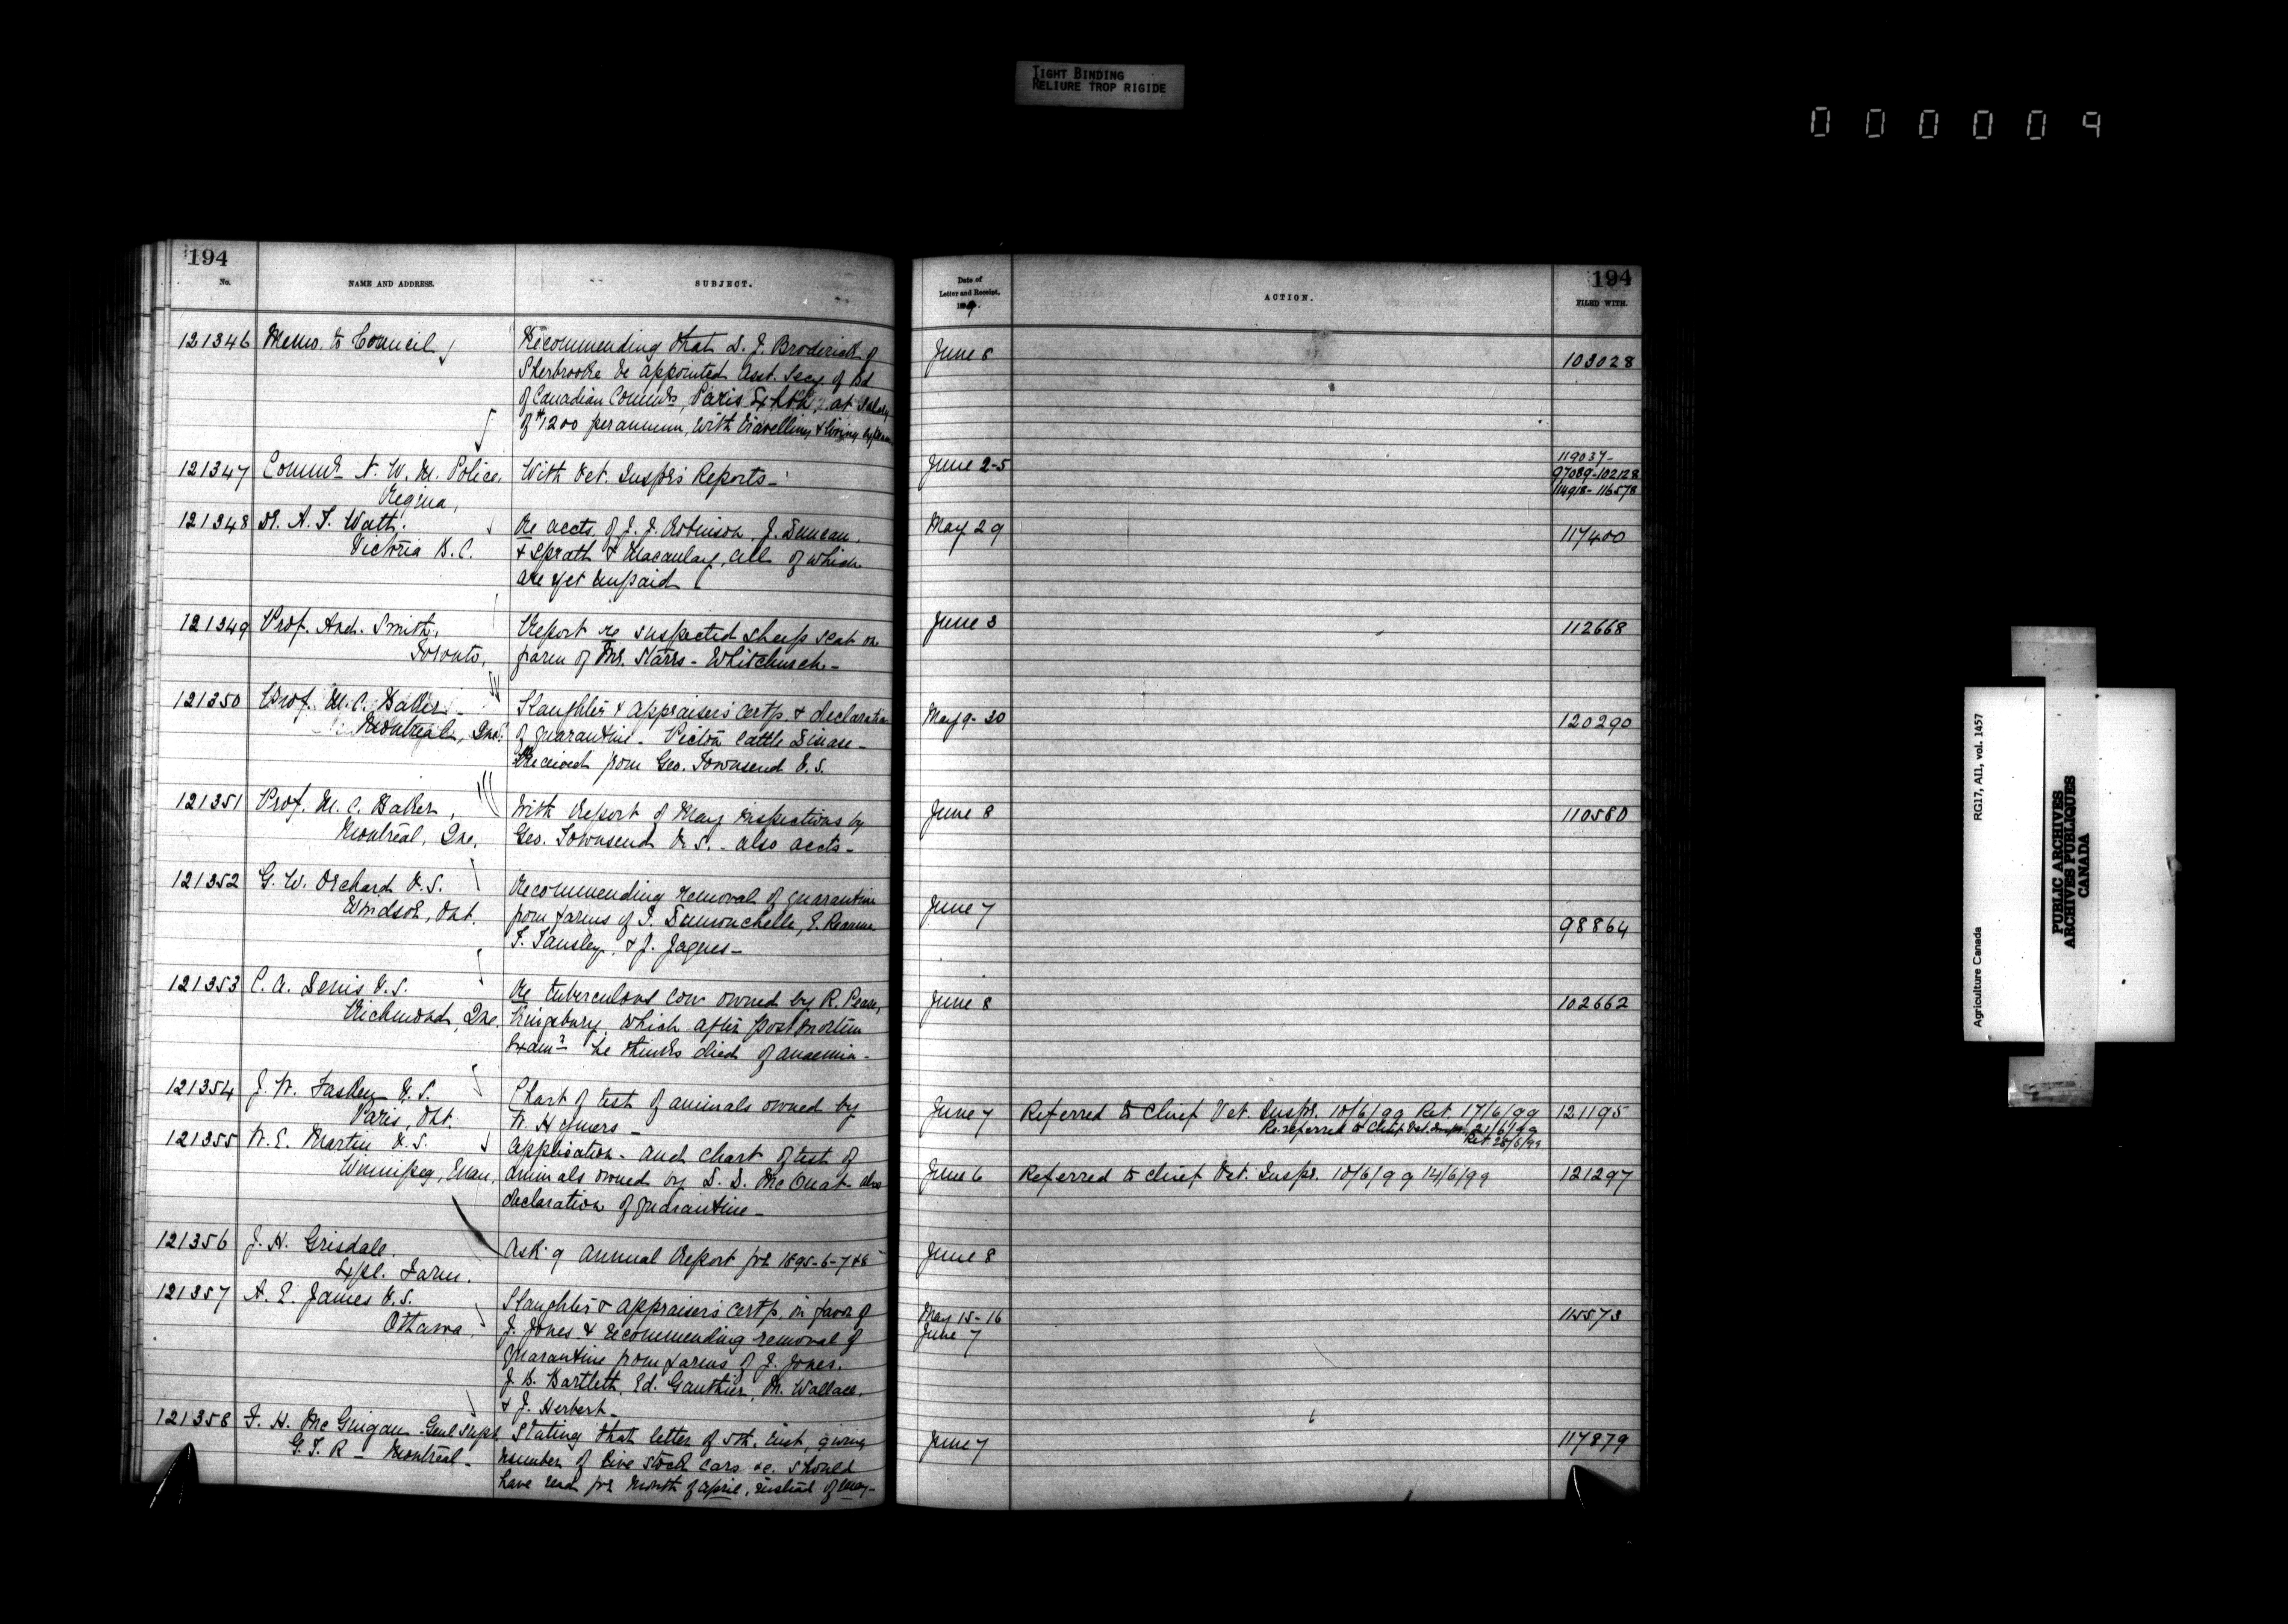 TIGHT BINDING
RELIURE TROP RIGIDE
000009
194
No.
NAME AND ADDRESS.
SUBJECT.
Date of
Letter and Receipt,
1899.
ACTION.
194
FILED WITH.
121346 Memo. to Council
Recommending that S. J. Broderick of
Sherbrooke be appointed Asst. Secy. of Bd
of Canadian Commrs, Paris Exhbn, at Salary
of $1200 per annum, with travelling & living expenses
June 8
103028
121347 Commr N. W. M. Police,
Regina,
With Vet. Insprs Reports -
June 2-5
119037-
97089-102128
114918-116578
121348 Dr. A. T. Watt.
Victoria B. C.
Re accts. of J. J. Robinson, J. Duncan.
& Spratt & Macaulay, all of which
are yet unpaid
May 29
117400
121349 Prof. And. Smith,
Toronto,
Report re suspected sheep scab on
farm of Mr. Starrs - Whitchurch -
June 3
112668
121350 Prof. M. C. Baker -
Montreal, Que.
Slaughter & appraisers certf. & declaration
of quarantine - Pictou Cattle Disease -
Received from Geo. Townsend V. S.
May 9-30
120290
121351 Prof. M. C. Baker,
Montreal, Que.
With Report of May inspections by
Geo. Townsend V. S. - also accts -
June 8
110580
121352 G. W. Orchard V. S.
Windsor, Ont.
Recommending removal of quarantine
from farms of T. Dumonchelle, E. Reaume
F. Tansley, & J. Jaques -
June 7
98864
121353 C. A. Denis V. S.
Richmond, Que.
Re tuberculous cow owned by R. Pease,
Kingsbury, which after post mortem
Examn he thinks died of anaemia -
June 8
102662
121354 J. W. Fasken V. S.
Paris, Ont.
Chart of test of animals owned by
W. Hymers -
June 7
Referred to Chief Vet. Inspr. 10/6/99 Ret. 17/6/99
Re-referred to Chief Vet. Inspr. 21/6/99
Ret. 28/6/99
121195
121355 W. E. Martin V. S.
Winnipeg, Man,
Application - and chart of test of
animals owned by S. D. McOuat also
declaration of quarantine -
June 6
Referred to Chief Vet. Inspr. 10/6/99 14/6/99
121297
121356 J. H. Grisdale.
Expl. Farm.
Ask'g annual Report for 1895-6-7 & 8
June 8
121357 A. E. James V. S.
Ottawa,
Slaughter & appraisers certf. in favor of
J. Jones & recommending removal of
quarantine from farms of J. Jones.
J. B. Bartlett, Ed. Gauthier, M. Wallace,
& J. Herbert -
May 15-16
June 7
115573
121358 F. H. McGuigan - Genl Supt.
G. T. R - Montreal -
Stating that letter of 5th. inst, giving
number of live stock cars &c. should
have read for month of April, instead of May -
June 7
117879
Agriculture Canada
RG17, AII, vol. 1457
PUBLIC ARCHIVES
ARCHIVES PUBLIQUES
CANADA